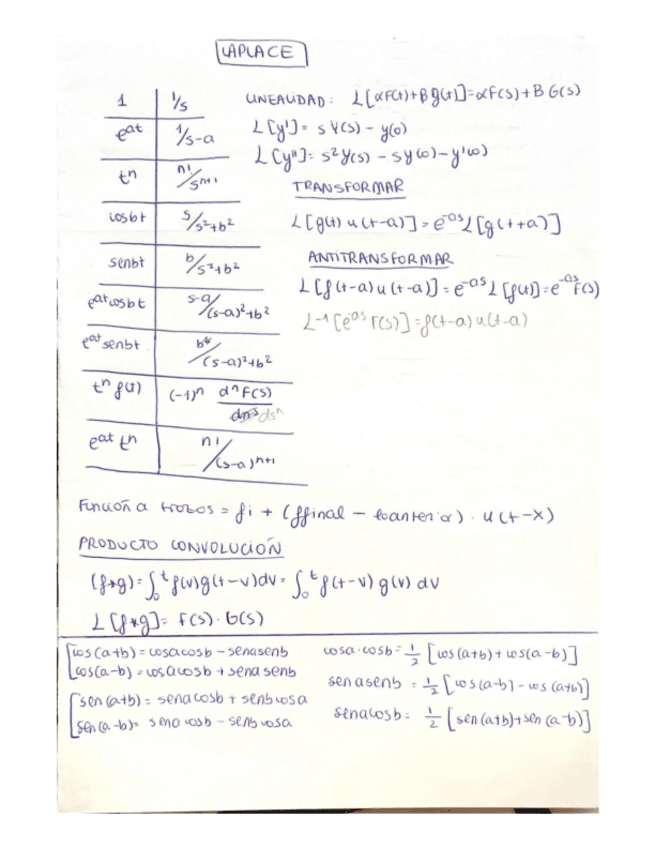 LAPLACE
1 | 1/s
e^at | 1/s-a
t^n | n!/s^n+1
cosbt | s/s²+b²
senbt | b/s²+b²
e^at cosbt | s-a/(s-a)²+b²
e^at senbt | b/(s-a)²+b²
t^n f(t) | (-1)^n d^n F(s)/ds^n
e^at t^n | n!/(s-a)^n+1
LINEALIDAD: L[αF(t)+Bg(t)]=αF(s)+BG(s)
L[y']= sY(s) - y(0)
L[y'']= s²y(s) - sy(0) - y'(0)
TRANSFORMAR
L[g(t) u(t-a)] = e^-as L[g(t+a)]
ANTITRANSFORMAR
L[f(t-a)u(t-a)] = e^-as L[f(t)] = e^-as F(s)
L^-1 [e^as F(s)] = f(t-a)u(t-a)
Función a trozos = fi + (ffinal - foanterior) . u(t-x)
PRODUCTO CONVOLUCIÓN
(f*g) = ∫₀^t f(v)g(t-v)dv = ∫₀^t f(t-v) g(v) dv
L[f*g] = F(s) . G(s)
cos(a+b) = cosacosb - senasenb
cos(a-b) = cosacosb + senasenb
sen(a+b) = senacosb + senbcosa
sen(a-b) = senacosb - senbcosa
cosa·cosb = 1/2 [cos(a+b) + cos(a-b)]
senasenb = 1/2 [cos(a-b) - cos(a+b)]
senacosb = 1/2 [sen(a+b)+sen(a-b)]